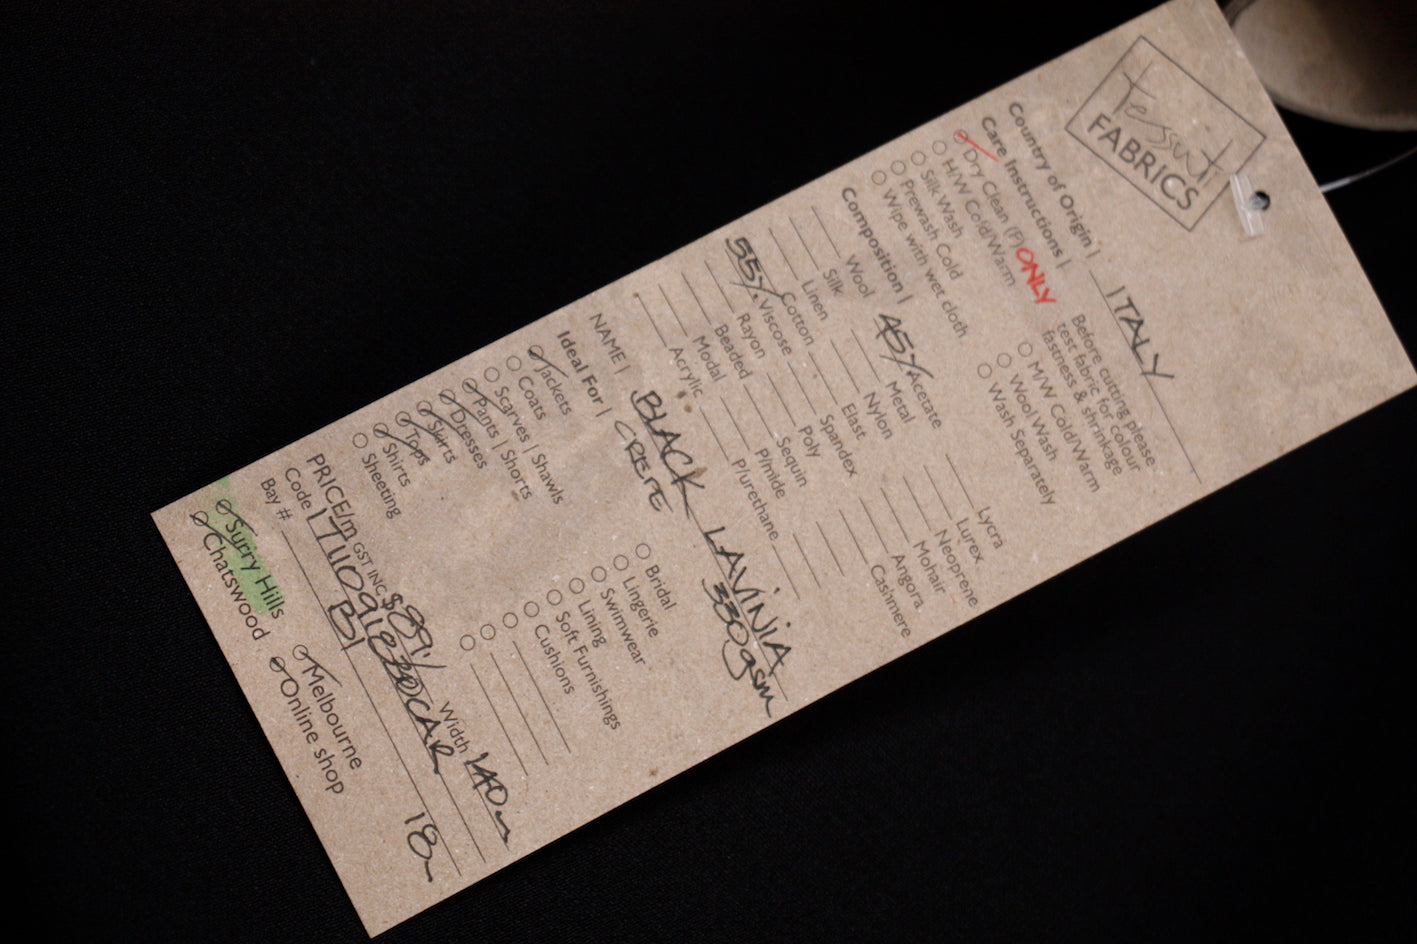 tessuti
FABRICS
Country of Origin | ITALY
Care Instructions |
Dry Clean (P) ONLY
H/W Cold/Warm
Silk Wash
Prewash Cold
Wipe with wet cloth
Before cutting please
test fabric for colour
fastness & shrinkage
M/W Cold/Warm
Wool Wash
Wash Separately
Composition |
Wool 45% Acetate Lycra
Silk Metal Lurex
Linen Nylon Neoprene
Cotton Elast Mohair
55% Viscose Spandex Angora
Rayon Poly Cashmere
Beaded Sequin
Modal P/mide
Acrylic P/urethane
NAME | BLACK LAVINIA
CREPE 330gsm
Ideal For |
Jackets Bridal
Coats Lingerie
Scarves | Shawls Swimwear
Pants | Shorts Lining
Dresses Soft Furnishings
Skirts Cushions
Tops
Shirts
Sheeting
PRICE/m GST INC $89/ Width 140cm
Code |
Bay # B1 18m
Surry Hills Melbourne
Chatswood Online shop